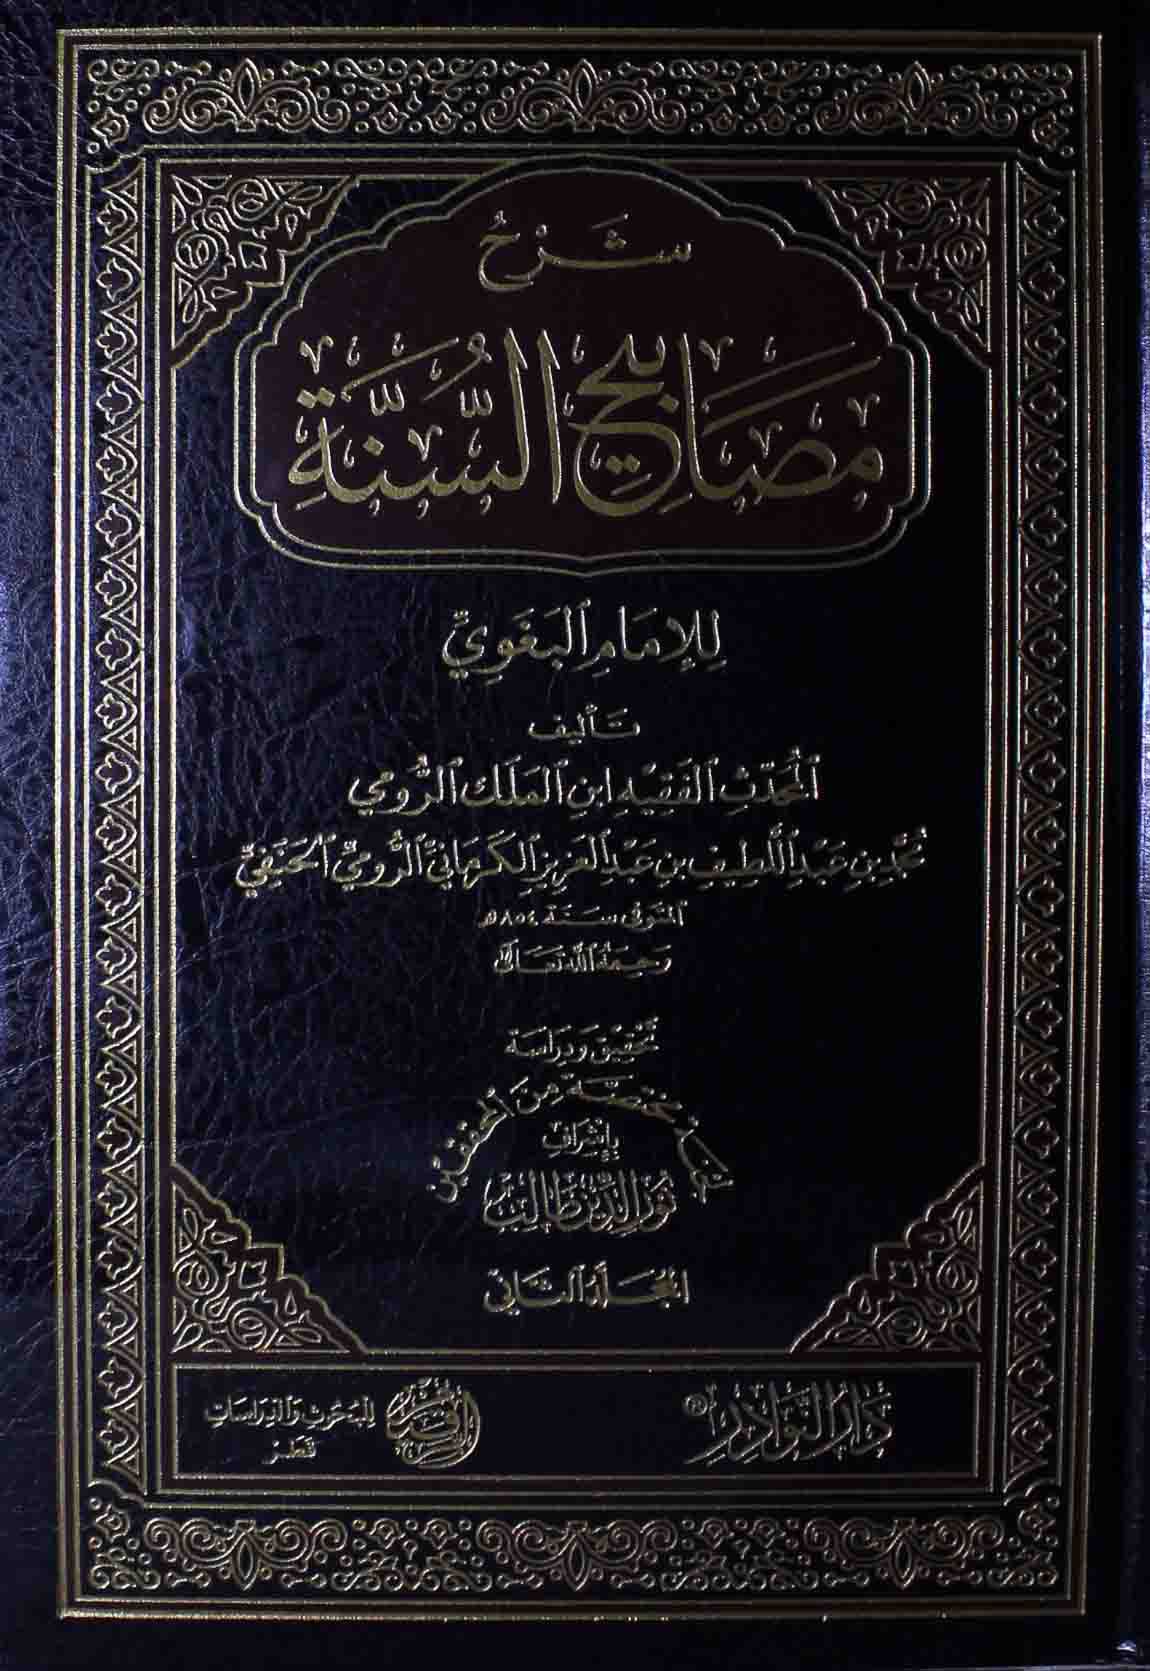 شَرْحُ
مَصَابِيحِ السُّنَّةِ
لِلإِمَامِ البَغَوِيِّ
تأليف
المُحَدِّثِ الفَقِيهِ ابنِ المَلَكِ الرُّومِي
مُحَمَّدِ بنِ عَبْدِ اللَّطِيفِ بنِ عَبْدِ العَزِيزِ الكَرْمَانِيِّ الرُّومِيِّ الحَنَفِيِّ
المتوفى سنة ٨٥٤ هـ
رحمه الله تعالى
تحقيق ودراسة
لجنة مختصة من المحققين
بإشراف
نور الدين طالب
المجلد الثاني
دار النوادر
للبحوث والدراسات
قطر